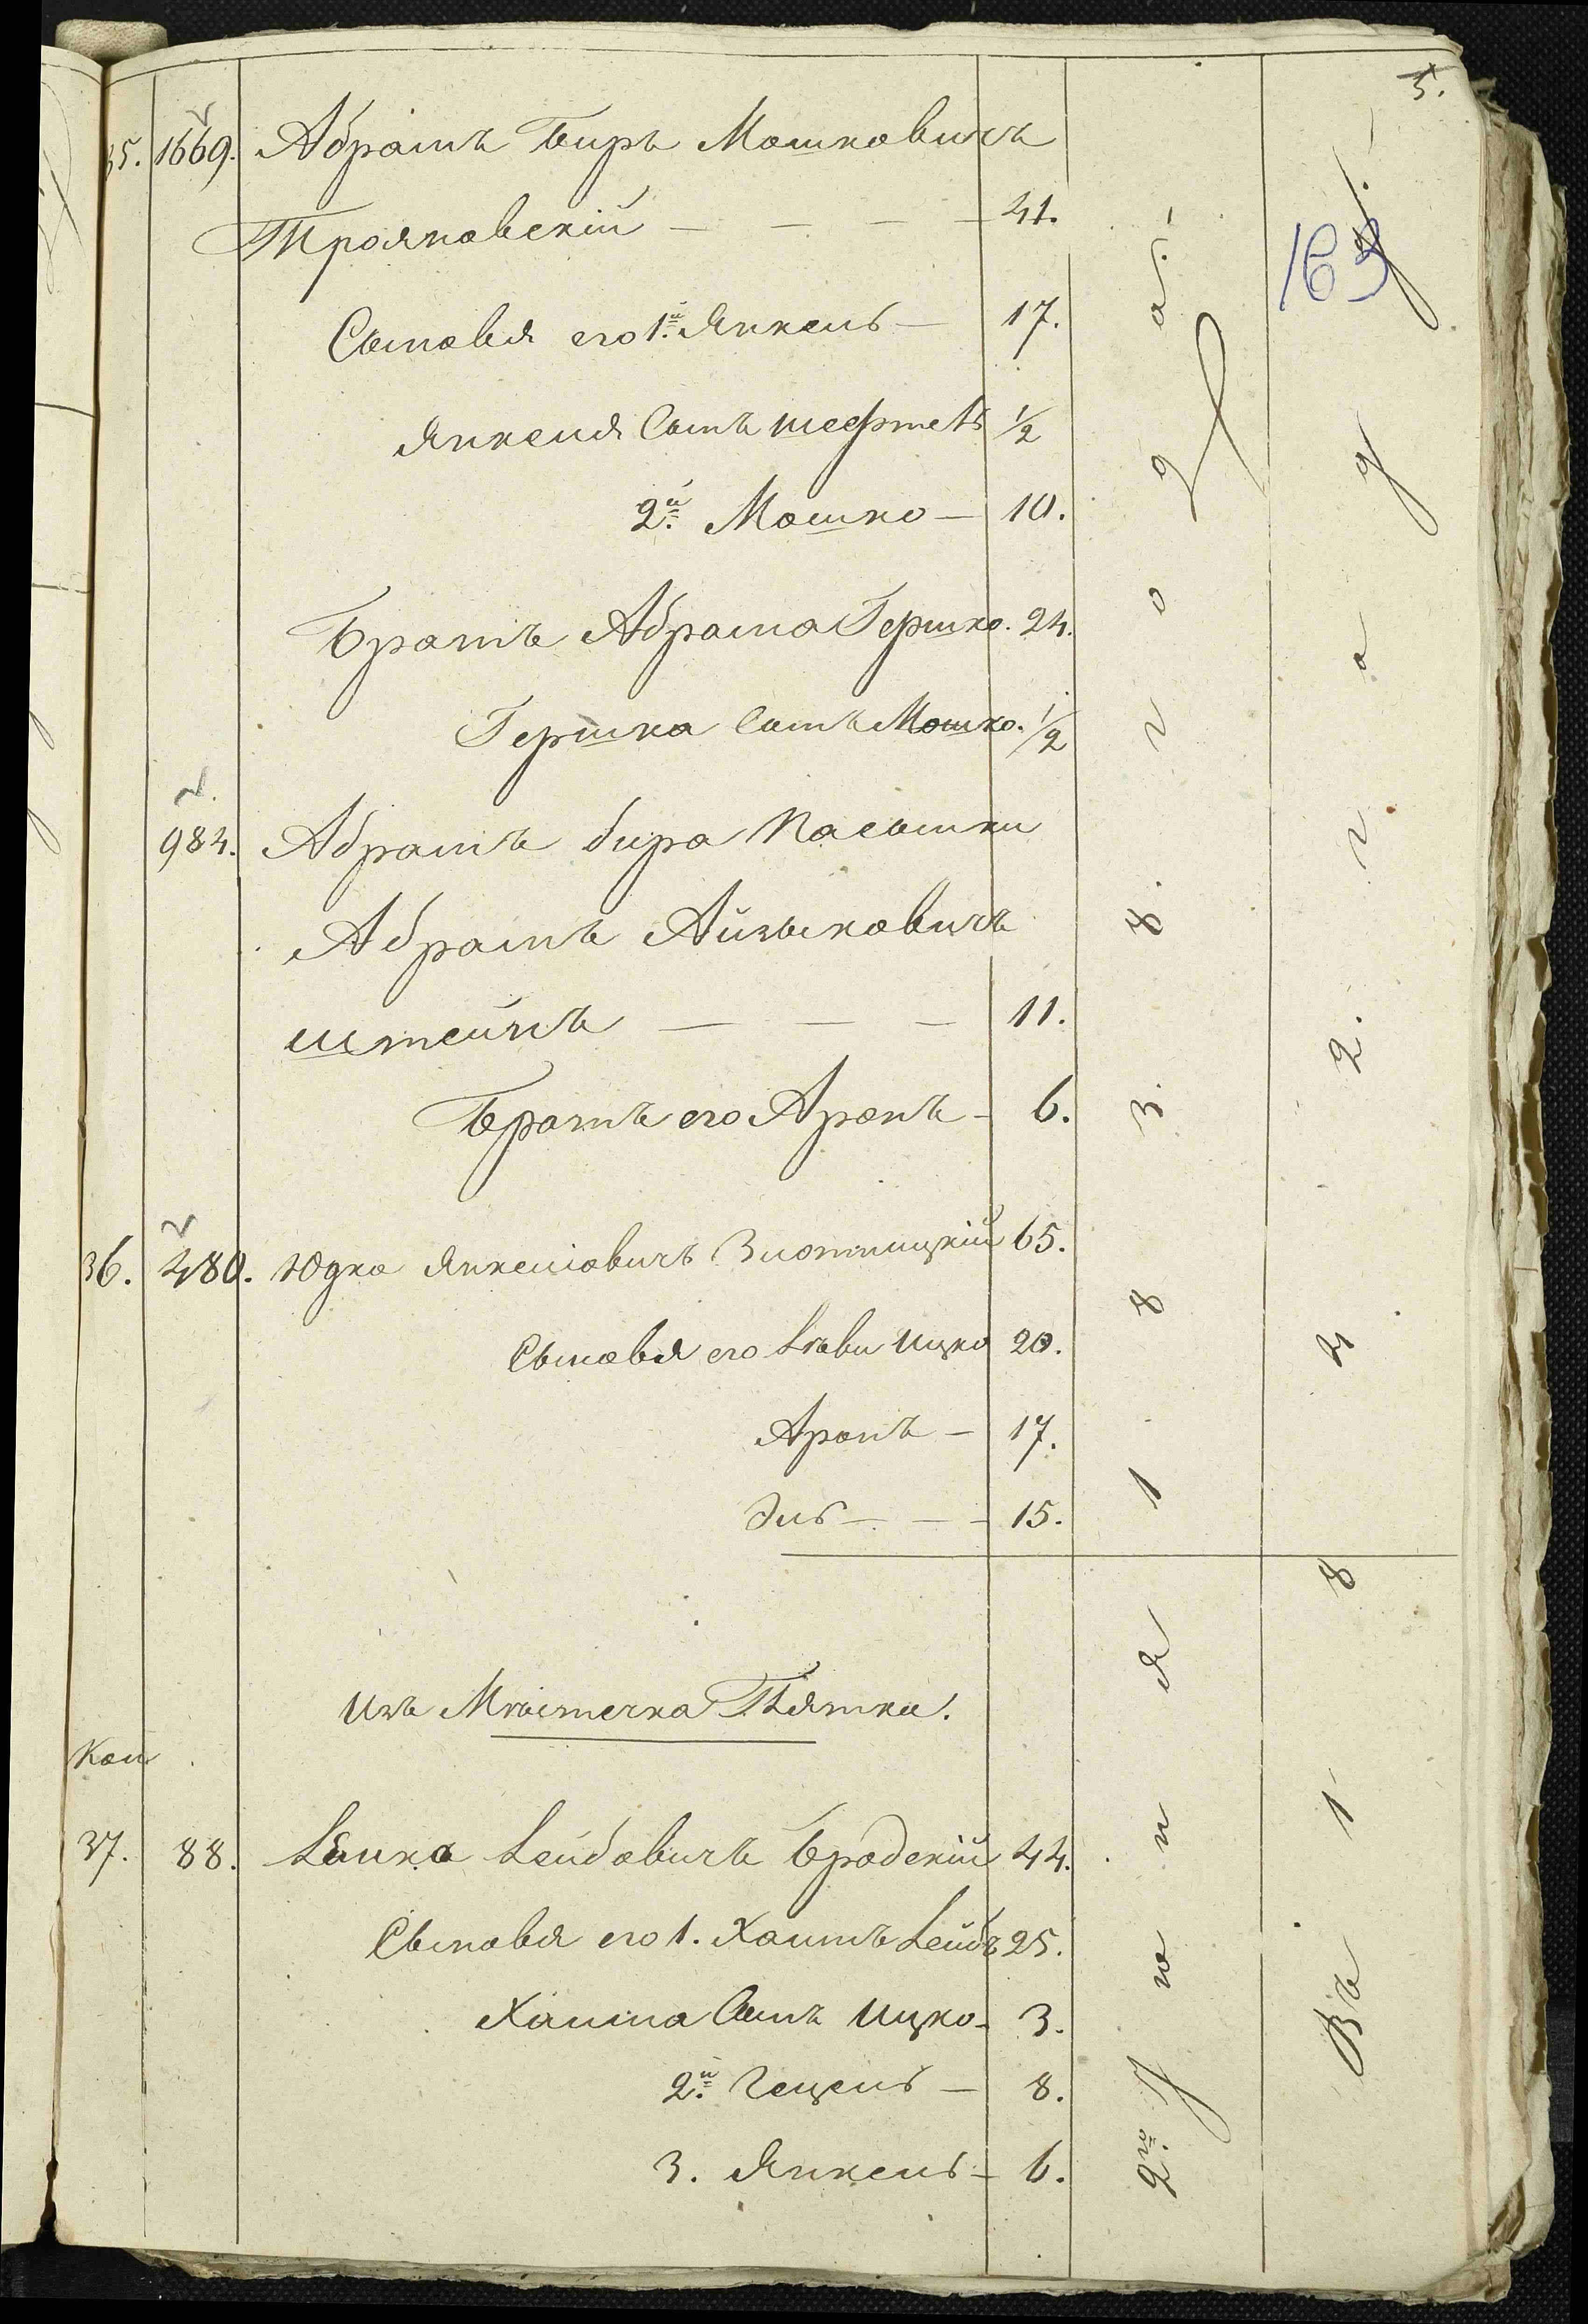 5.
163
35. 1669. Абрамъ Биръ Мошковичъ
Трояновскій — — — 41.
Сыновья его 1.й Янкель — 17.
Янкеля Сынъ Шефтель 1/2
2.й Мошко — 10.
Братъ Абрама Гершко. 24.
Гершка Сынъ Мошко. 1/2
984. Абрамъ бира Пасынки
Абрамъ Айзыковичъ
Штейнъ — — — 11.
Братъ его Аронъ — 6.
36. 480. Юдка Янкеліовичъ Злотницкій 65.
Сыновья его Лѣви Ицко 20.
Аронъ — 17.
Эль — — 15.
Изъ Мѣстечка Пятки.
Кои
37. 88. Лейбовичъ Бродскій 44.
Сыновья его 1. Хаимъ Лейбъ 25.
Хаима Сынъ Ицко — 3.
2.й Гецель — 8.
3. Янкель — 6.
2го Іюня 1838. года. —
Въ 1842. году. —